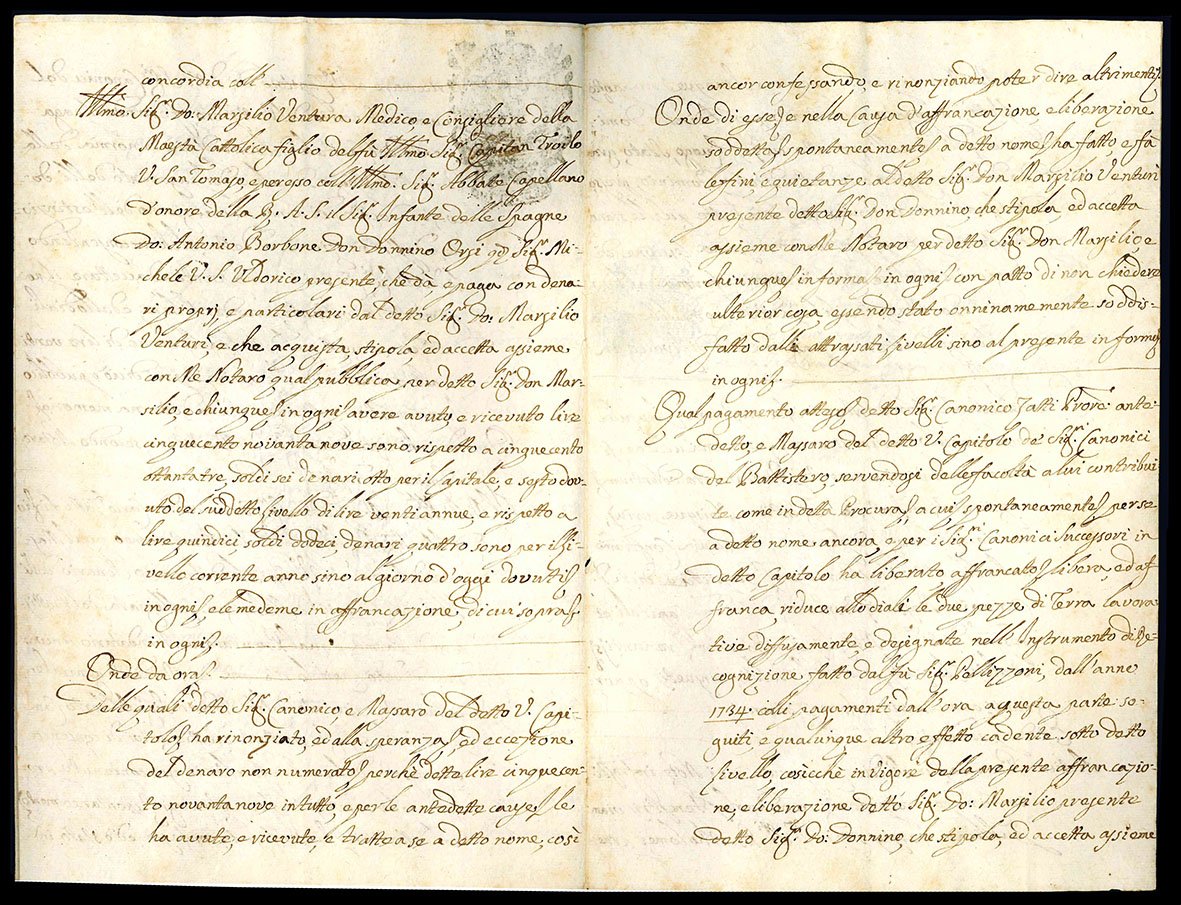 concordia coll'
Illmo. Sigr. Do: Marsilio Ventura Medico e Consigliore della
Maestà Cattolica figlio del fù Illmo. Sigr. Capitan Troilo
V. San Tomaso e per esso coll' Illmo. Sigr. Abbate Capellano
d'onore della R. A. S. il Sigr. Infante delle Spagne
Do: Antonio Borbone Don Donnino Orsi qd Sigr. Mi-
chele V. S. Uldorico presente, che dà, e paga con dena-
ri proprj e particolari dal detto Sigr. Do: Marsilio
Venturi, e che acquista, stipola ed accetta assieme
con Me Notaro qual pubblica per detto Sigr. Don Mar-
silio, e chiunque in ogni avere avuto, e ricevuto lire
cinquecento novanta nove sono rispetto a cinquecento
ottantatre, soldi sei denari otto per il Capitale, e sesto dov-
uto del suddetto livello di lire venti annue, e rispetto a
lire quindici, soldi dodeci, denari quattro sono per il li-
vello corrente anno sino al giorno d'oggi dovuti
in ogni e le medeme in affrancazione, di cui sopra
in ogni.
Onde da ora
Delle quali detto Sigr. Canonico e Massaro del detto V. Capi-
tolo ha rinonziato, ed alla speranza ed eccezione
del denaro non numerato perchè dette lire cinquecen-
to novanta nove in tutto, e per le antedette cause le
ha avute, e ricevute, e tratte a se a detto nome, così
ancor confessando, e rinonziando, poter dire altrimenti
Onde di esse, e nella Causa d'affrancazione e liberazione
soddetta spontaneamente a detto nome ha fatto e fà
le fini, e quietanze al detto Sigr. Don Marsilio Venturi
presente detto Sigr. Don Donnino, che stipola, ed accetta
assieme con Me Notaro per detto Sigr. Don Marsilio, e
chiunque in forma in ogni con patto di non chiedere
ulterior cosa essendo stato onninamente soddis-
fatto dalli attrassati livelli sino al presente in forma
in ogni.
Qual pagamento atteso detto Sigr. Canonico Jatti Prore. ante-
detto, e Massaro del detto V. Capitolo de' Sigri. Canonici
del Battistero, servendosi delle facoltà a lui contribui
te come in detta Procura, a cui spontaneamente per se
a detto nome ancora, e per i Sigri. Canonici Successori in
detto Capitolo ha liberato, affrancato, libera, ed af
franca, riduce allodiali le due pezze di Terra lavora
tive diffusamente, e designate nell' Instrumento di Re-
cognizione fatto dal fù Sigr. Pellizzoni, dall' anno
1734. colli pagamenti dall' ora a questa parte se-
guiti, e qualunque altro effetto cadente sotto detto
livello, cosicchè in vigore della presente affrancazio-
ne, e liberazione detto Sigr. Do: Marsilio presente
detto Sigr. Do: Donnino, che stipola, ed accetta assieme